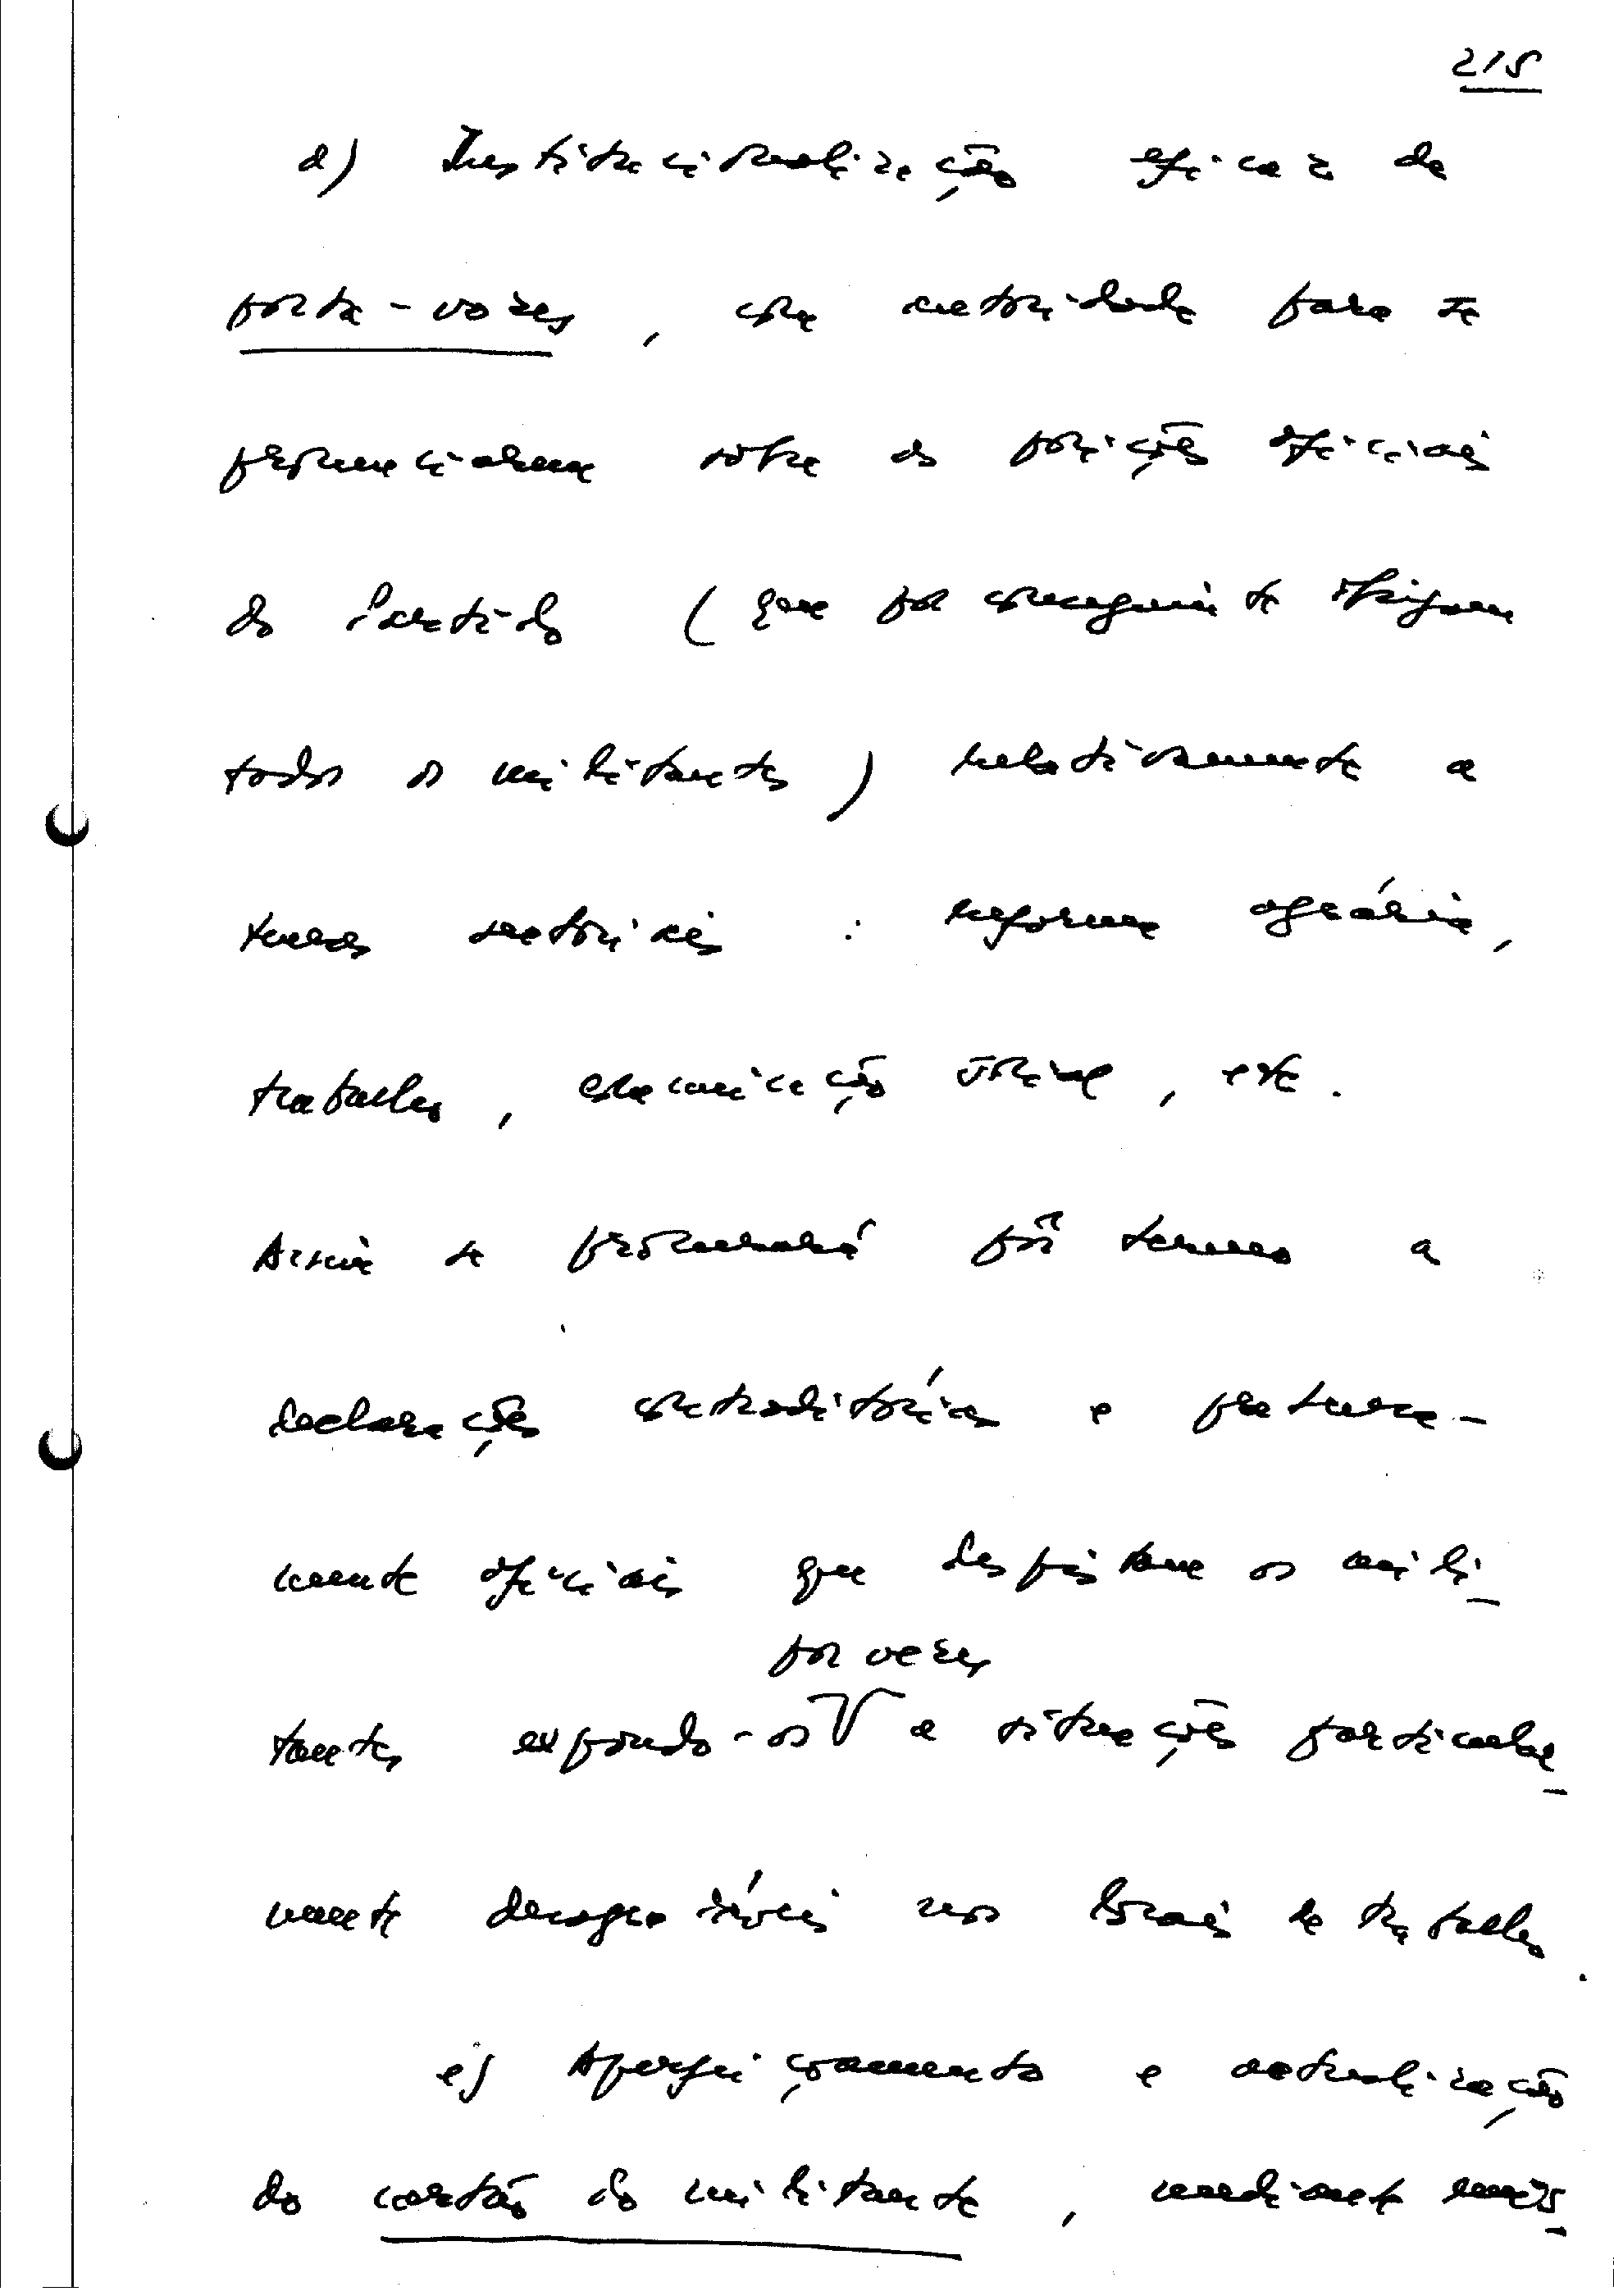 215
d) Institucionalização eficaz de
porta-vozes, com autoridade para se
pronunciarem sobre as posições oficiais
do Partido (que por conseguinte obrigam
todos os militantes) relativamente a
temas sectoriais: reforma agrária,
trabalho, comunicação social, etc.
Assim se procurará pôr termo a
declarações contraditórias e pretensa-
mente oficiais que despistam os mili-
por vezes
tantes expondo-os a situações particular-
mente desagradáveis nos locais de trabalho.
e) Aperfeiçoamento e actualização
do cartão do militante, mediante